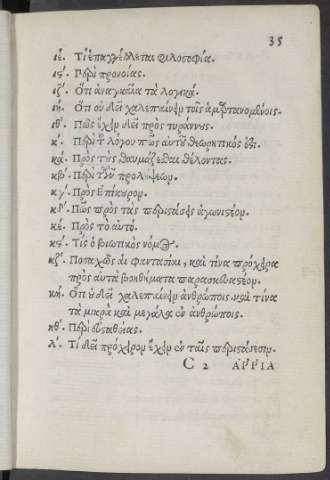 35
ιε΄. Τί ἐπαγγέλλεται φιλοσοφία.
ις΄. Περὶ προνοίας.
ιζ΄. Ὅτι ἀναγκαῖα τὰ λογικά.
ιη΄. Ὅτι οὐ δεῖ χαλεπαίνειν τοῖς ἁμαρτανομένοις.
ιθ΄. Πῶς ἔχειν δεῖ πρὸς τυράννους.
κ΄. Περὶ τοῦ λόγου πῶς αὑτοῦ θεωρητικός ἐστι.
κα΄. Πρὸς τοὺς θαυμάζεσθαι θέλοντας.
κβ΄. Περὶ τῶν προλήψεων.
κγ΄. Πρὸς Ἐπίκουρον.
κδ΄. Πῶς πρὸς τὰς περιστάσεις ἀγωνιστέον.
κε΄. Πρὸς τὸ αὐτό.
κς΄. Τίς ὁ βιωτικὸς νόμος.
κζ΄. Ποσαχῶς αἱ φαντασίαι, καὶ τίνα πρόχειρα
πρὸς αὐτὰ βοηθήματα παρασκευαστέον.
κη΄. Ὅτι οὐ δεῖ χαλεπαίνειν ἀνθρώποις. καὶ τίνα
τὰ μικρὰ καὶ μεγάλα ἐν ἀνθρώποις.
κθ΄. Περὶ εὐσταθείας.
λ΄. Τί δεῖ πρόχειρον ἔχειν ἐν ταῖς περιστάσεσιν.
C 2 ΑΡΡΙΑ